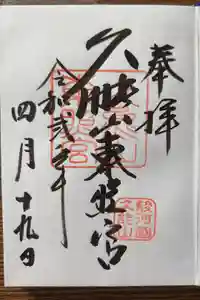 奉拝
久能山東照宮
令和弐年
四月十九日
駿河國
久能山